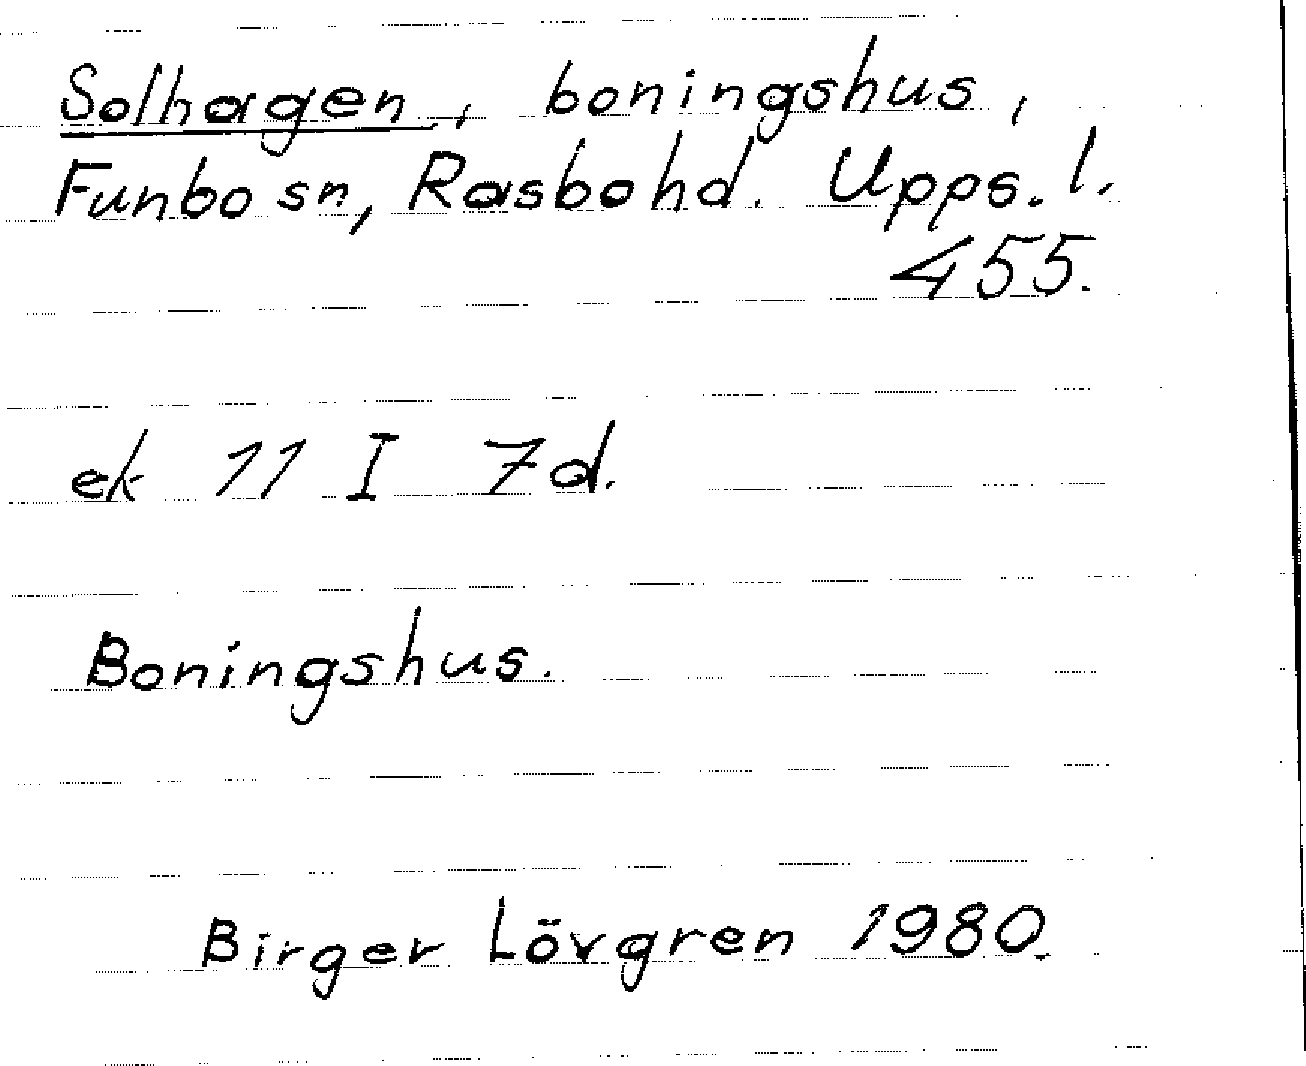 Solhagen, boningshus,
Funbo sn, Rasbo hd. Upps. l.
455.
ek 11 I 7d.
Boningshus.
Birger Lövgren 1980.